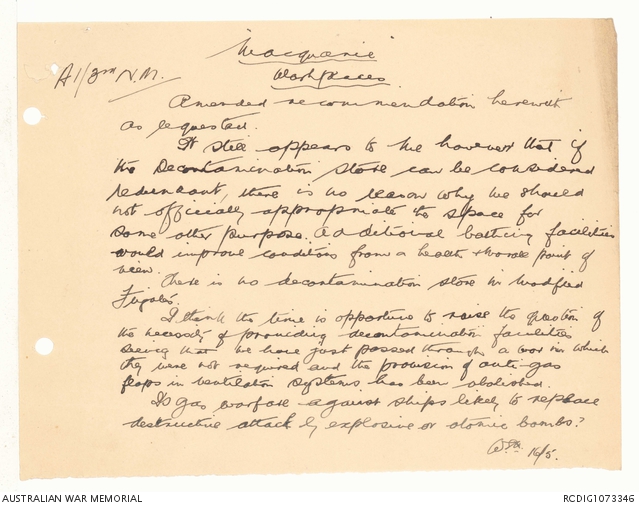 "Macquarie"
Washplaces
A1/3rd N.M.
Amended recommendation herewith
as requested.
It still appears to me however that if
the Decontamination Store can be considered
redundant, there is no reason why we should
not officially appropriate the space for
some other purpose. Additional bathing facilities
would improve conditions from a health & morale point of
view.
There is no decontamination store in modified
Frigates.
I think the time is opportune to raise the question of
the necessity of providing decontamination facilities
seeing that we have just passed through a war in which
they were not required and the provision of anti-gas
flaps in ventilation systems has been abolished.
Is gas warfare against ships likely to replace
destructive attack by explosive or atomic bombs?
16/5.
AUSTRALIAN WAR MEMORIAL
RCDIG1073346